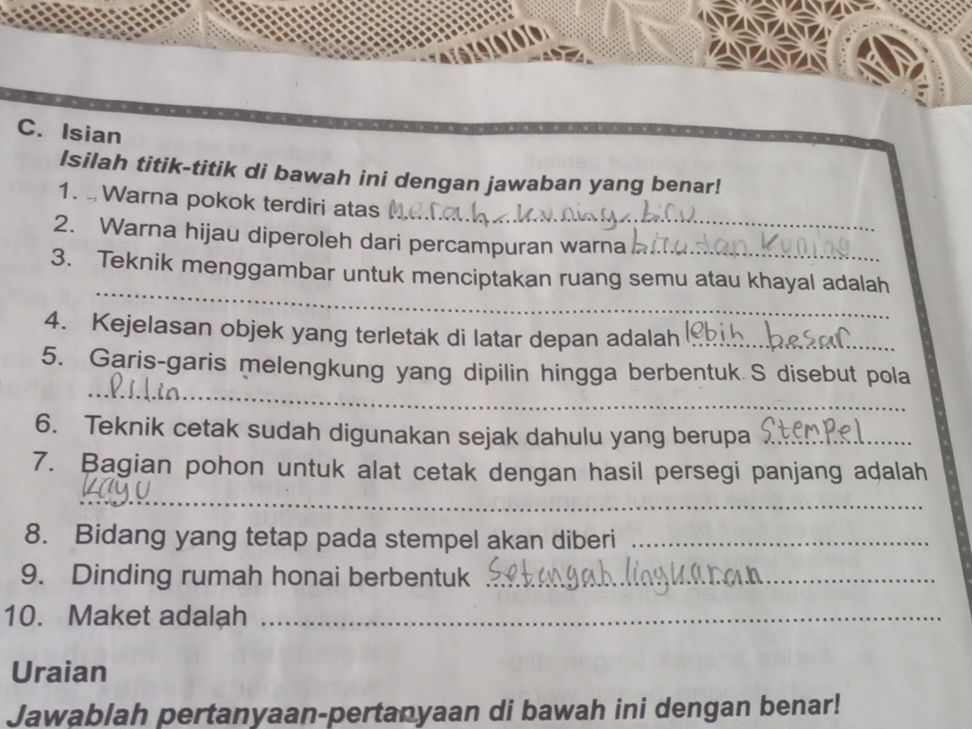 C. Isian
Isilah titik-titik di bawah ini dengan jawaban yang benar!
1. Warna pokok terdiri atas Merah, kuning, biru
2. Warna hijau diperoleh dari percampuran warna biru dan kuning
3. Teknik menggambar untuk menciptakan ruang semu atau khayal adalah
....................
4. Kejelasan objek yang terletak di latar depan adalah lebih besar
5. Garis-garis melengkung yang dipilin hingga berbentuk S disebut pola
Pilin
6. Teknik cetak sudah digunakan sejak dahulu yang berupa Stempel
7. Bagian pohon untuk alat cetak dengan hasil persegi panjang adalah
kayu
8. Bidang yang tetap pada stempel akan diberi ....................
9. Dinding rumah honai berbentuk Setengah lingkaran
10. Maket adalah ....................
Uraian
Jawablah pertanyaan-pertanyaan di bawah ini dengan benar!